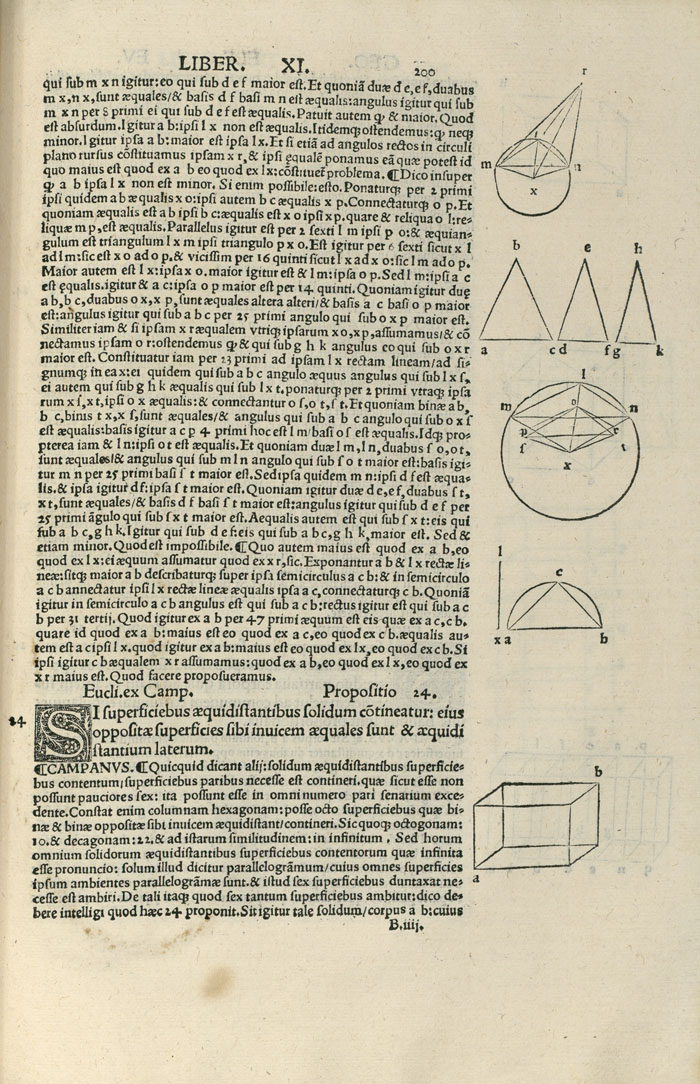 LIBER. XI. 200
qui sub m x n igitur: eo qui sub d e f maior est. Et quoniã duæ d e, e f, duabus
m x, n x, sunt æquales/& basis d f basi m n est æqualis: angulus igitur qui sub
m x n per 8 primi ei qui sub d e f est æqualis. Patuit autem ꝙ & maior. Quod
est absurdum. Igitur a b: ipsi l x non est æqualis. Itidemqꝫ ostendemus: ꝙ neqꝫ
minor. Igitur ipsa a b: maior est ipsa l x. Et si etiã ad angulos rectos in circuli
plano rursus cõstituamus ipsam x r, & ipsi ęqualē ponamus eã quæ potest id
quo maius est quod ex a b eo quod ex l x: cõstituet̃ problema. ¶Dico insuper
ꝙ a b ipsa l x non est minor. Si enim possibile: esto. Ponaturqꝫ per 2 primi
ipsi quidem a b æqualis x o: ipsi autem b c æqualis x p. Connectaturqꝫ o p. Et
quoniam æqualis est a b ipsi b c: æqualis est x o ipsi x p. quare & reliqua o l: re-
liquæ m p, est æqualis. Parallelus igitur est per 2 sexti l m ipsi p o: & æquian-
gulum est triangulum l x m ipsi triangulo p x o. Est igitur per 6 sexti sicut x l
ad l m: sic est x o ad o p. & vicissim per 16 quinti sicut l x ad x o: sic l m ad o p.
Maior autem est l x: ipsa x o. maior igitur est & l m: ipsa o p. Sed l m: ipsi a c
est ęqualis. igitur & a c: ipsa o p maior est per 14 quinti. Quoniam igitur duę
a b, b c, duabus o x, x p, sunt æquales altera alteri/& basis a c basi o p maior
est: angulus igitur qui sub a b c per 25 primi angulo qui sub o x p maior est.
Similiter iam & si ipsam x r æqualem vtriqꝫ ipsarum x o, x p, assumamus/& cõ
nectamus ipsam o r: ostendemus ꝙ & qui sub g h k angulus eo qui sub o x r
maior est. Constituatur iam per 23 primi ad ipsam l x rectam lineam/ad si-
gnumqꝫ in ea x: ei quidem qui sub a b c angulo æquus angulus qui sub l x ſ,
ei autem qui sub g h k æqualis qui sub l x t. ponaturqꝫ per 2 primi vtraqꝫ ipsa
rum x ſ, x t, ipsi o x æqualis: & connectantur o ſ, o t, ſ t. Et quoniam binæ a b,
b c, binis t x, x ſ, sunt æquales/& angulus qui sub a b c angulo qui sub o x ſ
est æqualis: basis igitur a c p 4 primi hoc est l m/basi o ſ est æqualis. Idqꝫ pro-
pterea iam & l n: ipsi o t est æqualis. Et quoniam duæ l m, l n, duabus ſ o, o t,
sunt æquales/& angulus qui sub m l n angulo qui sub ſ o t maior est: basis igi-
tur m n per 25 primi basi ſ t maior est. Sed ipsa quidem m n: ipsi d f est æqua-
lis. & ipsa igitur d f: ipsa ſ t maior est. Quoniam igitur duæ d e, e f, duabus ſ t,
x t, sunt æquales/& basis d f basi ſ t maior est: angulus igitur qui sub d e f per
25 primi ãgulo qui sub ſ x t maior est. Aequalis autem est qui sub ſ x t: eis qui
sub a b c, g h k. Igitur qui sub d e f: eis qui sub a b c, g h k, maior est. Sed &
etiam minor. Quod est impossibile. ¶Quo autem maius est quod ex a b, eo
quod ex l x: ei æquum assumatur quod ex x r, sic. Exponantur a b & l x rectæ li-
neæ: sitqꝫ maior a b describaturqꝫ super ipsa semicirculus a c b: & in semicirculo
a c b annectatur ipsi l x rectæ lineæ æqualis ipsa a c, connectaturqꝫ c b. Quoniã
igitur in semicirculo a c b angulus est qui sub a c b: rectus igitur est qui sub a c
b per 31 tertij. Quod igitur ex a b per 47 primi æquum est eis quæ ex a c, c b.
quare id quod ex a b: maius est eo quod ex a c, eo quod ex c b. æqualis au-
tem est a c ipsi l x. quod igitur ex a b: maius est eo quod ex l x, eo quod ex c b. Si
ipsi igitur c b æqualem x r assumamus: quod ex a b, eo quod ex l x, eo quod ex
x r maius est. Quod facere proposueramus.
Eucli. ex Camp. Propositio 24.
24
SI superficiebus æquidistantibus solidum cõtineatur: eius
oppositæ superficies sibi inuicem æquales sunt & æquidi
stantium laterum.
¶CAMPANVS. ¶Quicquid dicant alij: solidum æquidistantibus superficie-
bus contentum/superficiebus paribus necesse est contineri. quæ sicut esse non
possunt pauciores sex: ita possunt esse in omni numero pari senarium exce-
dente. Constat enim columnam hexagonam: posse octo superficiebus quæ bi-
næ & binæ oppositæ sibi inuicem æquidistant/contineri. Sic quoqꝫ octogonam:
10. & decagonam: 22. & ad istarum similitudinem: in infinitum. Sed horum
omnium solidorum æquidistantibus superficiebus contentorum quæ infinita
esse pronuncio: solum illud dicitur parallelogrãmum/cuius omnes superficies
ipsum ambientes parallelogrãmæ sunt. & istud sex superficiebus duntaxat ne-
cesse est ambiri. De tali itaqꝫ quod sex tantum superficiebus ambitur: dico de-
bere intelligi quod hæc 24 proponit. Sit igitur tale solidum/corpus a b: cuius
B. iiij.
r
m n
x
b e h
a c d f g k
l
m o n
p r
ſ t
x
l
c
x a b
b
a